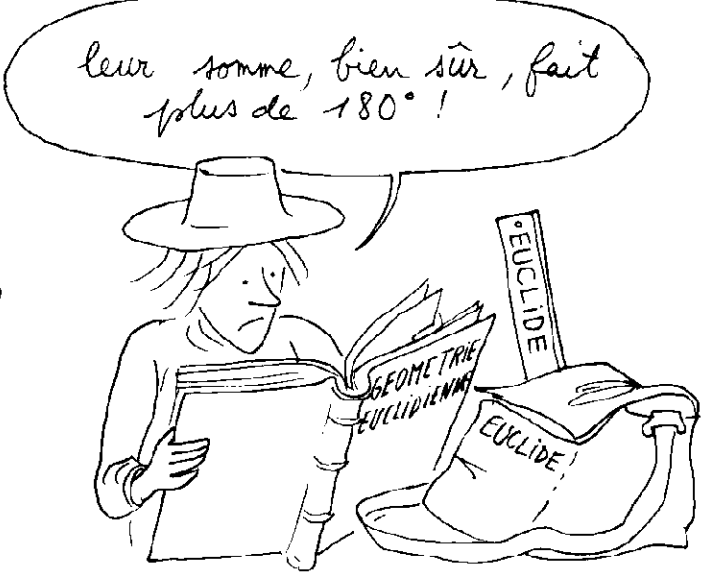 leur somme, bien sûr, fait
plus de 180° !
GEOMETRIE
EUCLIDIENNE
EUCLIDE
EUCLIDE